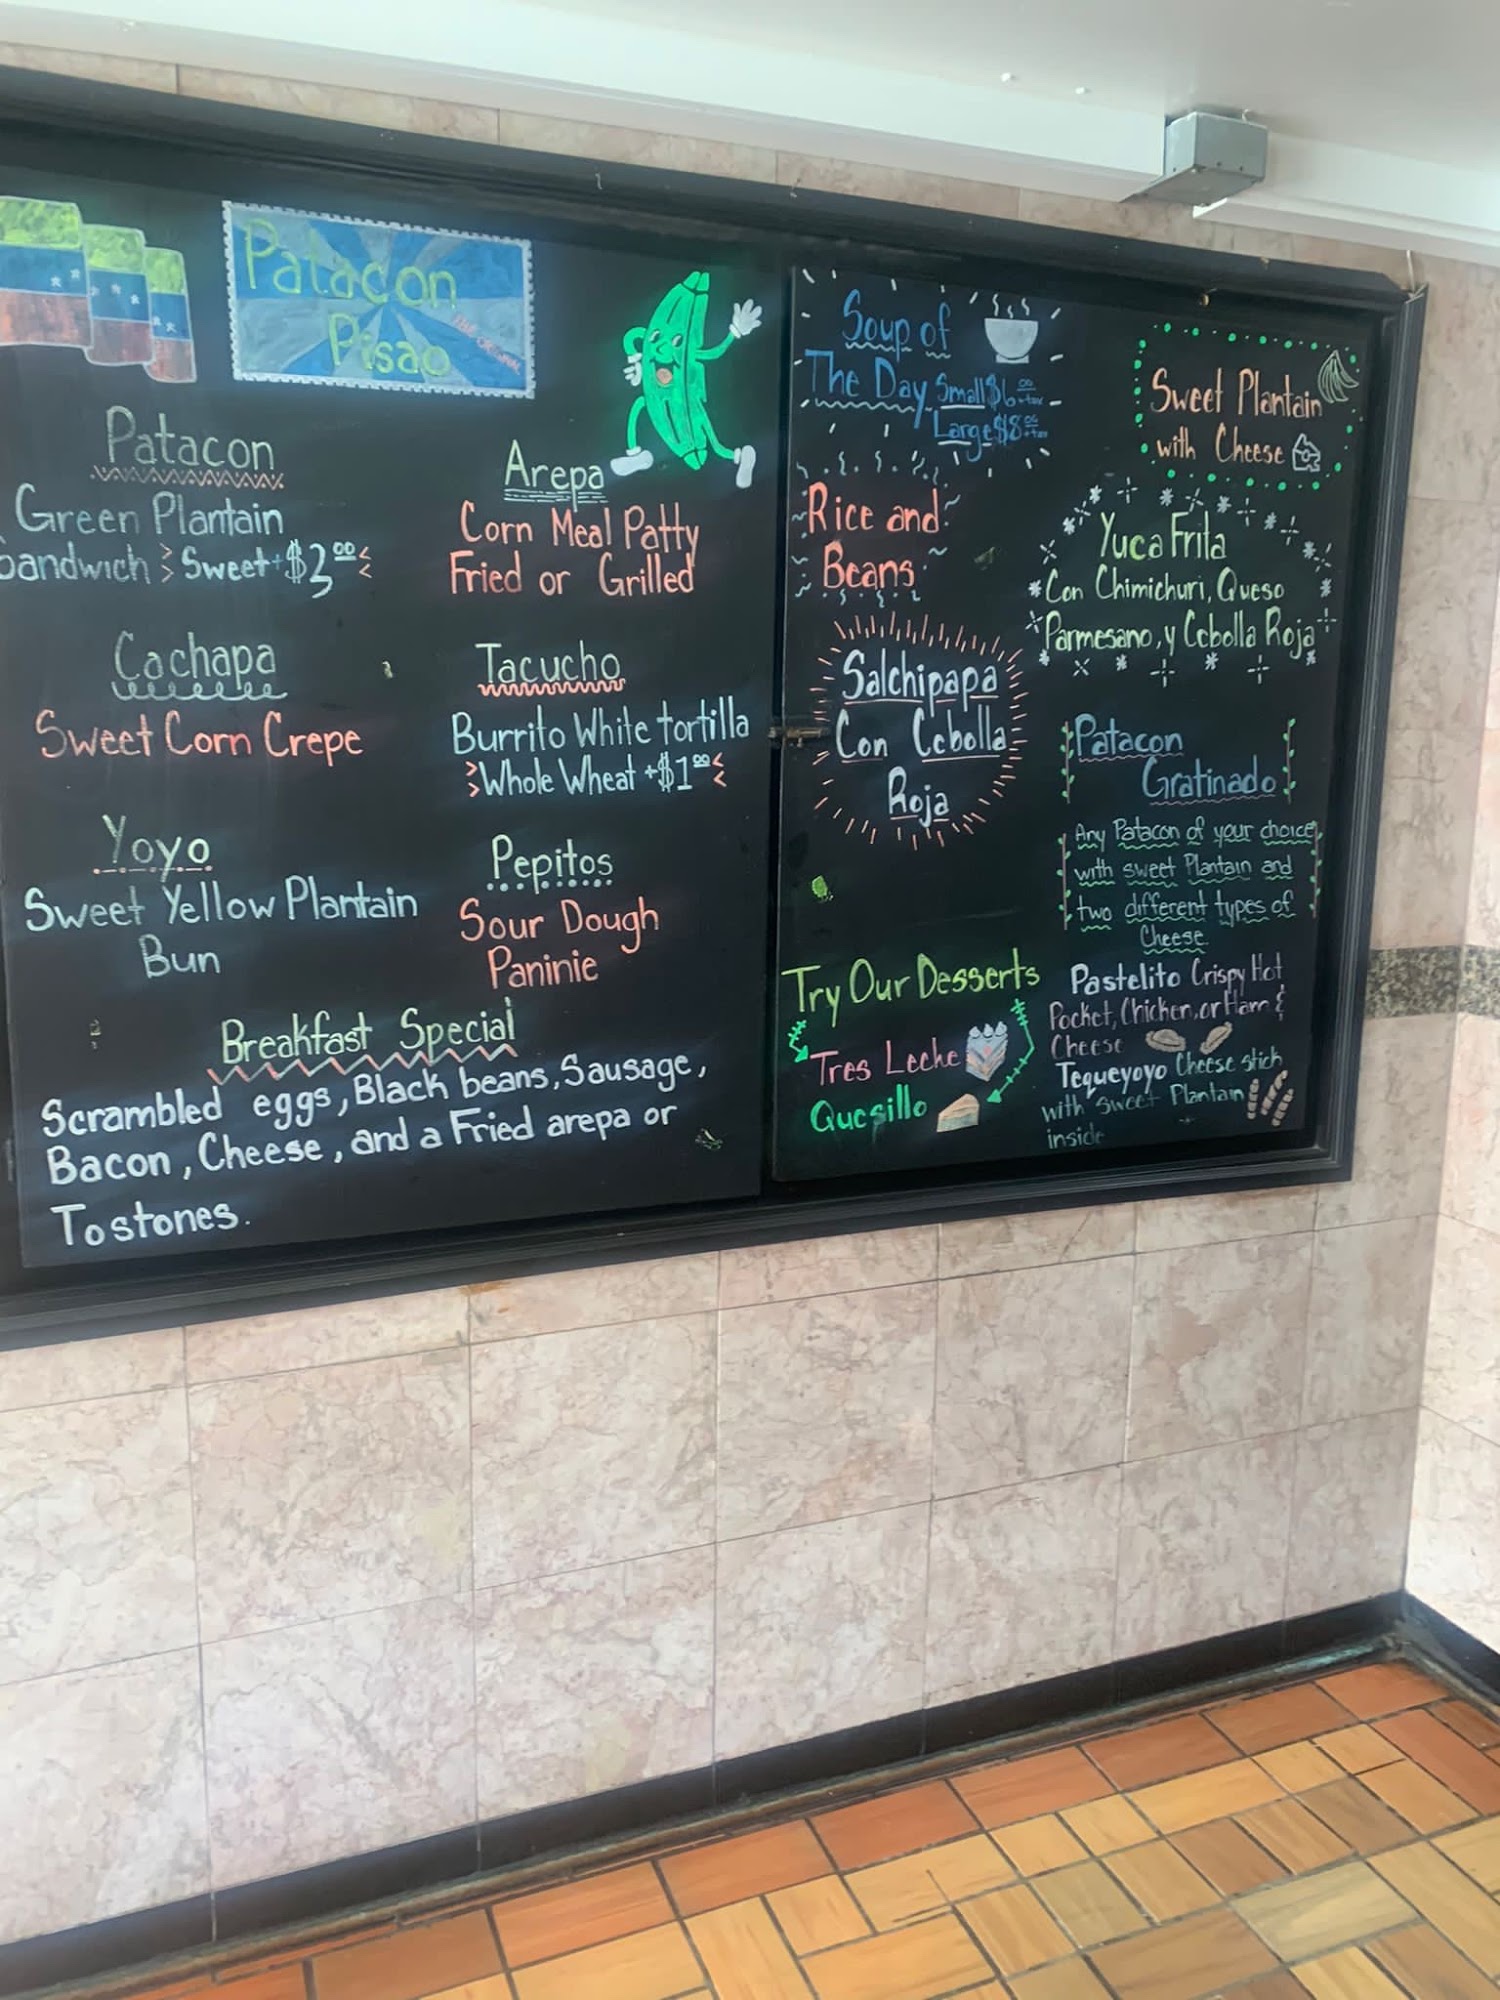 Patacon
Pisao
THE ORIGINAL
Patacon
Green Plantain
Sandwich > Sweet + $3.00 <
Cachapa
Sweet Corn Crepe
Yoyo
Sweet Yellow Plantain
Bun
Arepa
Corn Meal Patty
Fried or Grilled
Tacucho
Burrito White tortilla
>Whole Wheat +$1.00<
Pepitos
Sour Dough
Paninie
Breakfast Special
Scrambled eggs, Black beans, Sausage,
Bacon, Cheese, and a Fried arepa or
Tostones.
Soup of
The Day Small $6.00 +tax
Large $8.00 +tax
Rice and
Beans
Salchipapa
Con Cebolla
Roja
Try Our Desserts
Tres Leche
Quesillo
Sweet Plantain
with Cheese
Yuca Frita
Con Chimichuri, Queso
Parmesano, y Cebolla Roja
Patacon
Gratinado
Any Patacon of your choice
with sweet Plantain and
two different types of
Cheese
Pastelito Crispy Hot
Pocket, Chicken, or Ham &
Cheese
Tequeyoyo Cheese stick
with Sweet Plantain
inside